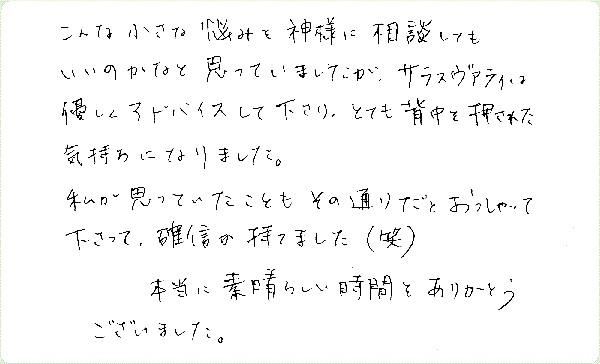 こんな小さな悩みを神様に相談しても
いいのかなと思っていましたが、サラスヴァティは
優しくアドバイスして下さり、とても背中を押された
気持ちになりました。
私が思っていたこともその通りだとおっしゃって
下さって、確信が持てました(笑)
本当に素晴らしい時間をありがとう
ございました。